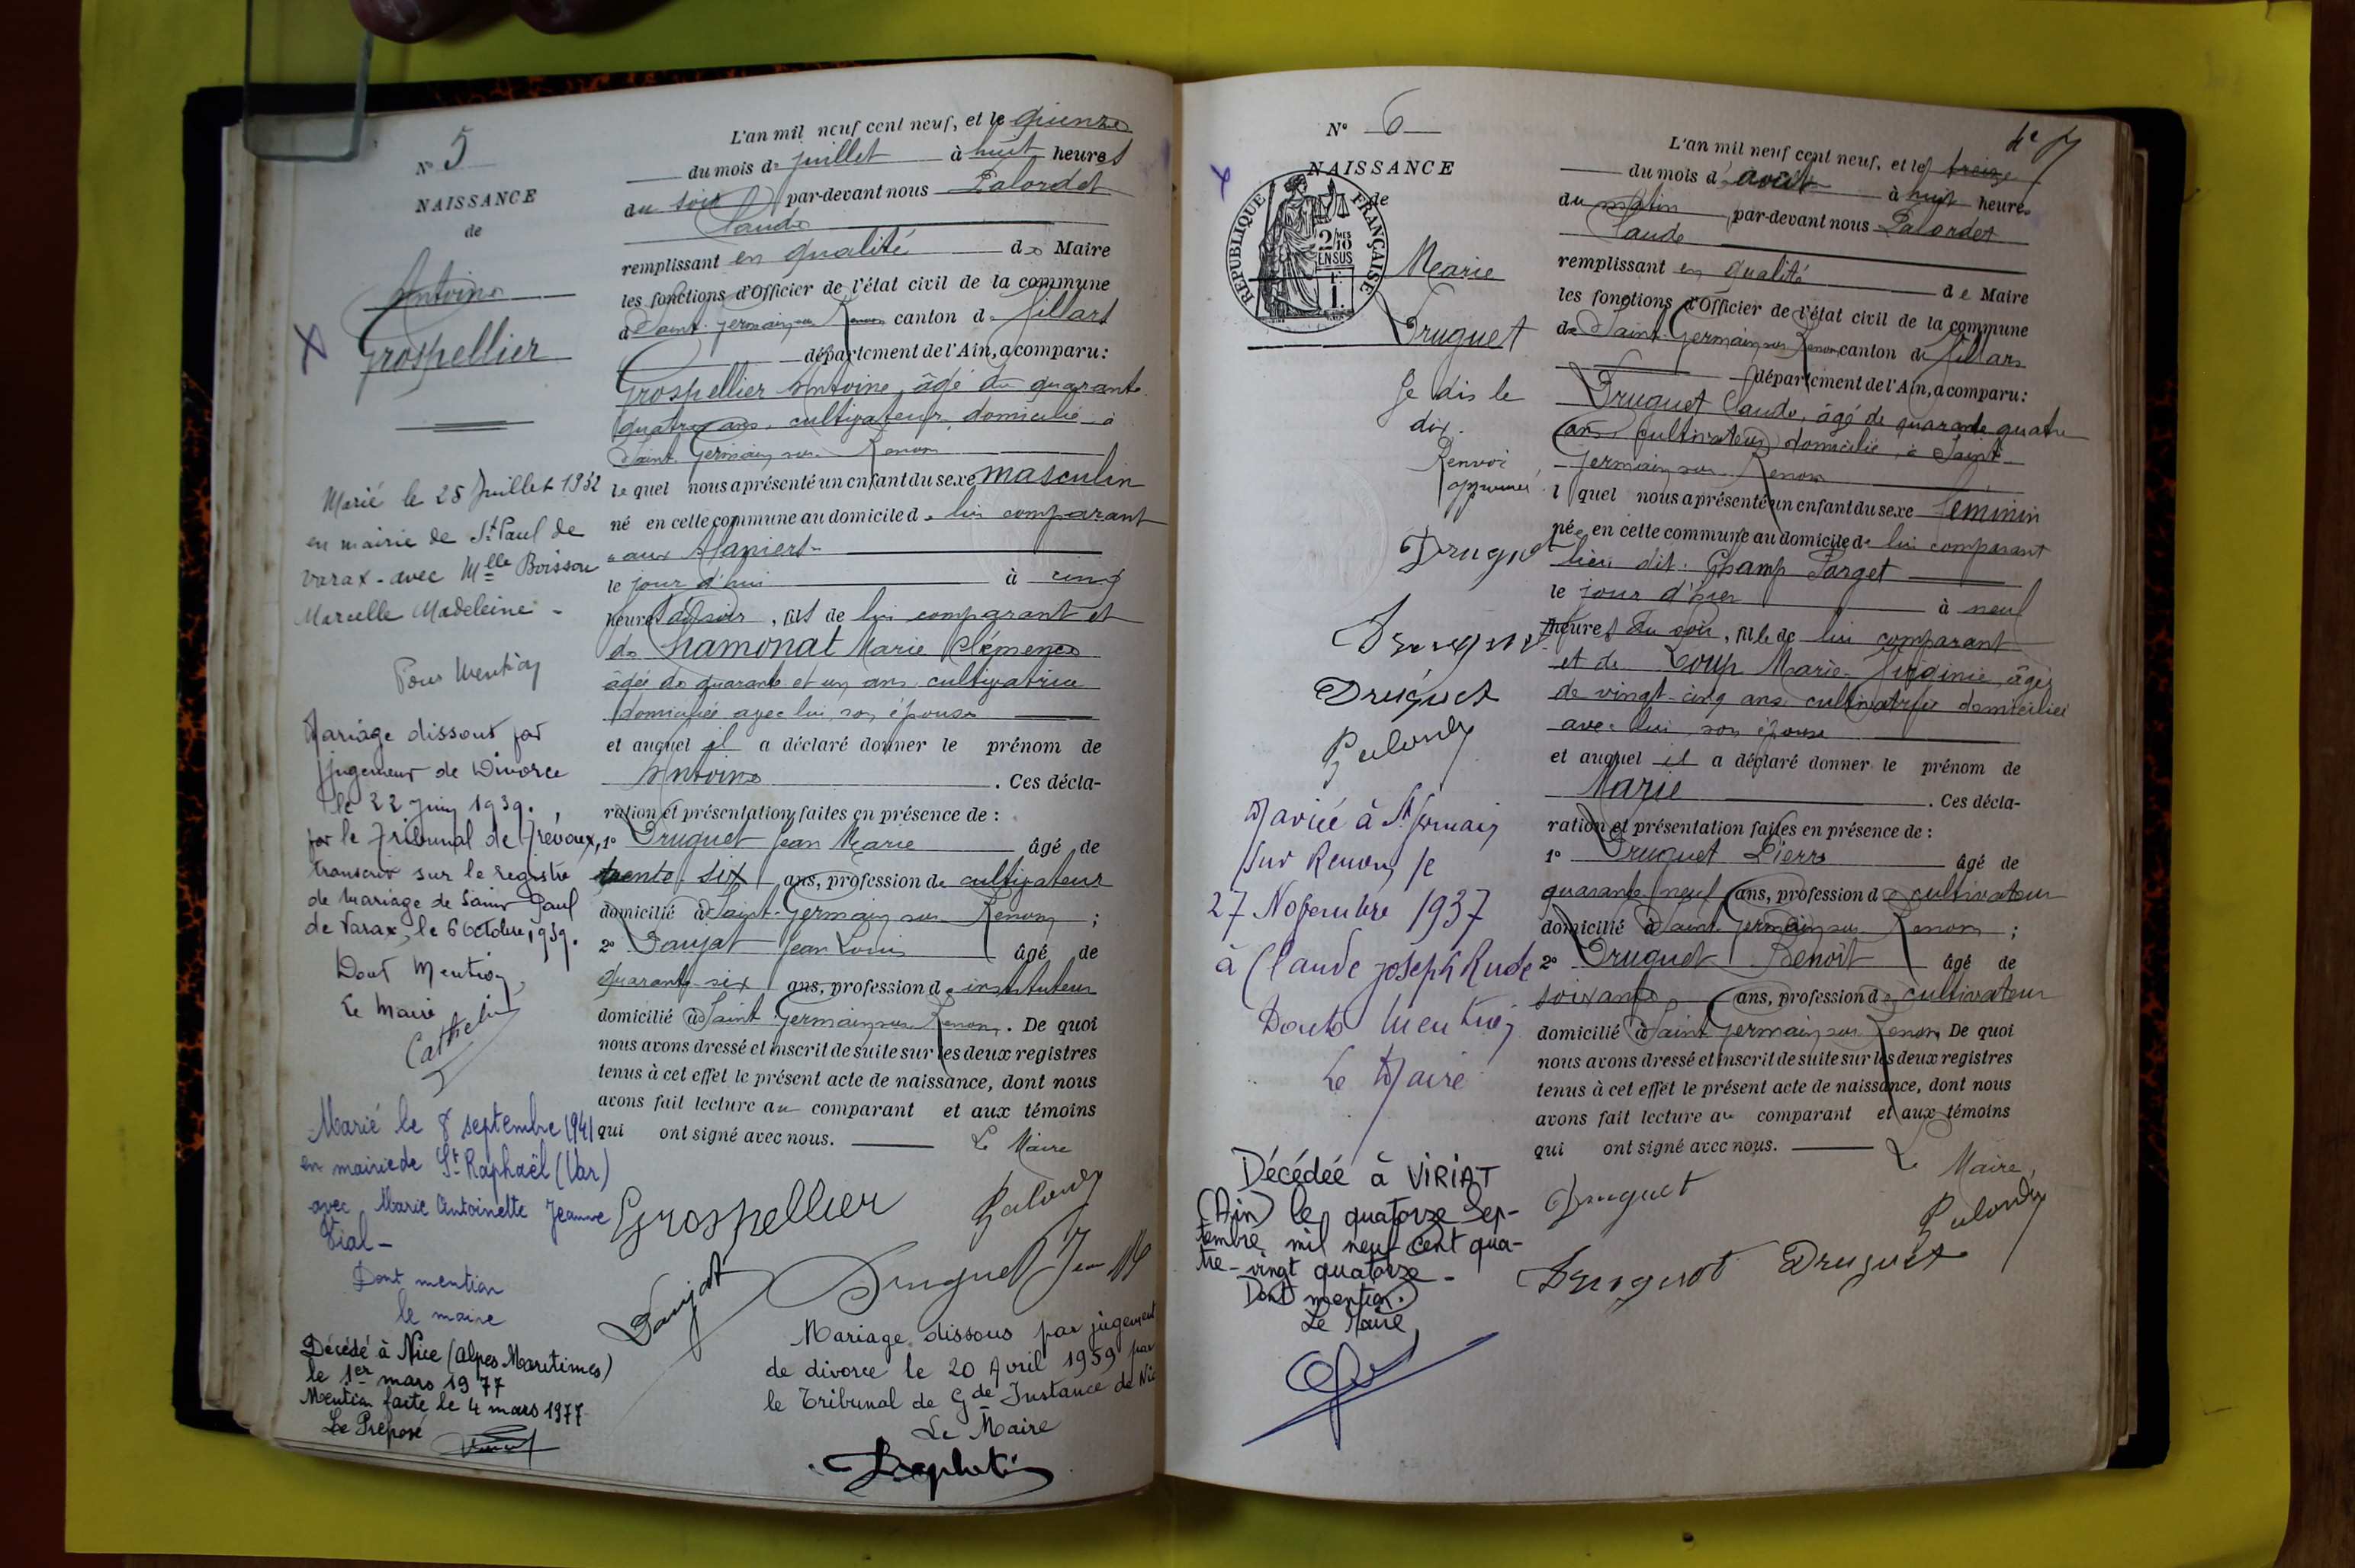 N° 5
NAISSANCE
de
Antoine
Grospellier
Marié le 28 Juillet 1932
en mairie de St Paul de
Varax - avec Mlle Boisson
Marcelle Madeleine -
Pour Mention
Mariage dissout par
jugement de Divorce
le 22 Juin 1939.
par le Tribunal de Trévoux,
transcrit sur le registre
de Mariage de Saint Paul
de Varax, le 6 Octobre 1939.
Dont Mention
Le Maire
Marié le 8 septembre 1941
en mairie de St Raphaël (Var)
avec Marie Antoinette Jeanne
Vial -
Dont mention
le maire
Décédé à Nice (Alpes Maritimes)
le 1er mars 1977
Mention faite le 4 mars 1977
Le Préposé
L'an mil neuf cent neuf, et le quinze
du mois de juillet à huit heures
du soir par-devant nous Palordet
Claude
remplissant en qualité de Maire
les fonctions d'Officier de l'état civil de la commune
de Saint-Germain sur Renon canton de Villars
département de l'Ain, a comparu :
Grospellier Antoine, âgé de quarante
quatre ans, cultivateur, domicilié à
Saint Germain sur Renon
lequel nous a présenté un enfant du sexe masculin
né en cette commune au domicile de lui comparant
aux
le jour d'hui à cinq
heures du soir, fils de lui comparant et
de Chamonat Marie Clémence
âgée de quarante et un ans cultivatrice
domiciliée avec lui, son épouse
et auquel il a déclaré donner le prénom de
Antoine. Ces décla-
ration et présentation faites en présence de :
1° Druguet Jean Marie âgé de
trente six ans, profession de cultivateur
domicilié à Saint-Germain sur Renon ;
2° Daujat Jean Louis âgé de
quarante-six ans, profession d instituteur
domicilié à Saint Germain sur Renon. De quoi
nous avons dressé et inscrit de suite sur les deux registres
tenus à cet effet le présent acte de naissance, dont nous
avons fait lecture au comparant et aux témoins
qui ont signé avec nous. Le Maire
Grospellier Palordet
Daujat Druguet Jean M
Mariage dissous par jugement
de divorce le 20 Avril 1959 par
le Tribunal de Gde Instance de Nice
Le Maire
N° 6
NAISSANCE
de
RÉPUBLIQUE FRANÇAISE
2/10 MES
EN SUS
Marie
Druguet
Je dis le
dix.
Renvoi
approuvé
Druguet
Druguet
Druguet
Palordet
Mariée à St Germain
sur Renon le
27 Novembre 1937
à Claude Joseph Rude
Dont Mention
Le Maire
Décédée à VIRIAT
(Ain) le quatorze Sep-
tembre mil neuf cent qua-
tre-vingt quatorze -
Dont mention.
Le Maire
L'an mil neuf cent neuf, et le treize
du mois d'août à huit heures
du matin par-devant nous Palordet
Claude
remplissant en qualité de Maire
les fonctions d'Officier de l'état civil de la commune
de Saint-Germain sur Renon canton de Villars
département de l'Ain, a comparu :
Druguet Claude, âgé de quarante quatre
ans, cultivateur, domicilié à Saint-
Germain sur Renon
lequel nous a présenté un enfant du sexe féminin
née en cette commune au domicile de lui comparant
lieu dit : Champ Farget
le jour d'hier à neuf
heures du soir, fille de lui comparant
et de Loup Marie-Virginie, âgée
de vingt-cinq ans cultivatrice domiciliée
avec lui, son épouse
et auquel il a déclaré donner le prénom de
Marie. Ces décla-
ration et présentation faites en présence de :
1° Druguet Pierre âgé de
quarante neuf ans, profession de cultivateur
domicilié à Saint-Germain sur Renon ;
2° Druguet Benoît âgé de
soixante ans, profession de cultivateur
domicilié à Saint Germain sur Renon De quoi
nous avons dressé et inscrit de suite sur les deux registres
tenus à cet effet le présent acte de naissance, dont nous
avons fait lecture au comparant et aux témoins
qui ont signé avec nous. Le Maire,
Druguet Palordet
Druguet Druguet